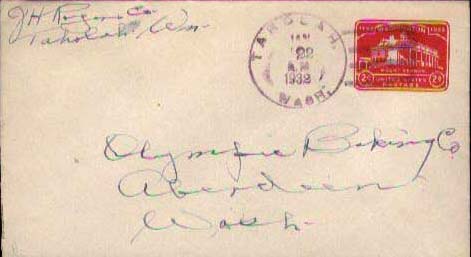 J H Rogers Co
Taholah, Wn
TAHOLAH,
JAN
22
A.M
1932
WASH.
1732 WASHINGTON 1932
MOUNT VERNON
2¢ UNITED STATES 2¢
POSTAGE
Olympic Baking Co
Aberdeen
Wash.